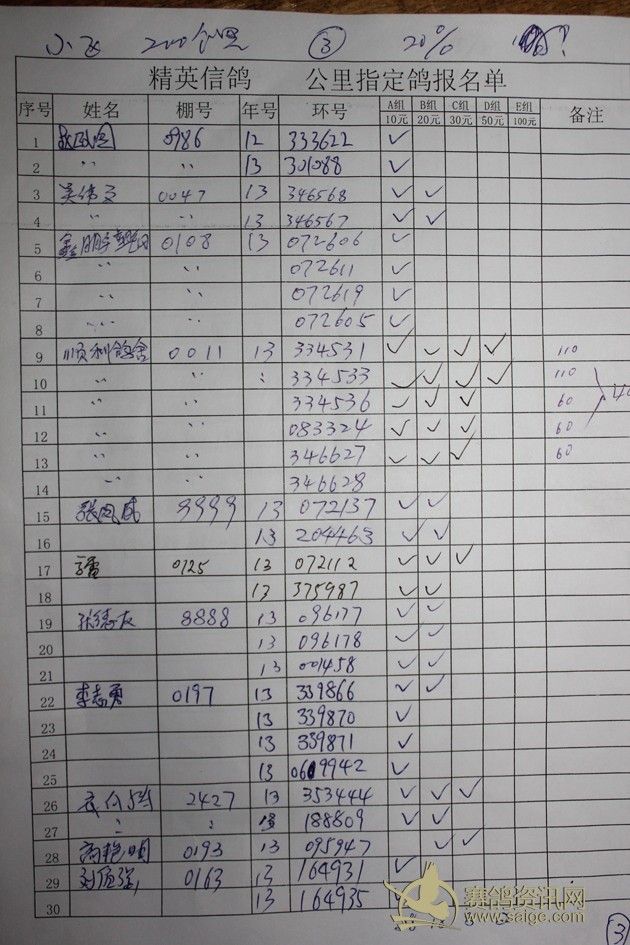 200公里 ③ 20%
精英信鸽 公里指定鸽报名单
序号 姓名 棚号 年号 环号 A组 10元 B组 20元 C组 30元 D组 50元 E组 100元 备注
1 0986 12 333622 ✓
2 〃 〃 13 301088 ✓
3 0047 13 346568 ✓ ✓
4 〃 〃 13 346567 ✓ ✓
5 0108 13 072606 ✓
6 〃 〃 072611 ✓
7 〃 〃 072619 ✓
8 〃 〃 072605 ✓
9 顺利鸽舍 0011 13 334531 ✓ ✓ ✓ ✓ 110
10 〃 〃 〃 334533 ✓ ✓ ✓ ✓ 110
11 〃 〃 334536 ✓ ✓ ✓ 60
12 〃 〃 083324 ✓ ✓ ✓ 60
13 〃 〃 346627 ✓ ✓ ✓ 60
14 〃 〃 346628
15 张凤成 9999 13 072137 ✓ ✓
16 13 204463 ✓ ✓
17 0125 13 072112 ✓ ✓ ✓
18 13 375987 ✓ ✓
19 张德友 8888 13 096177 ✓ ✓
20 13 096178 ✓ ✓
21 13 001458 ✓ ✓
22 李志勇 0197 13 339866 ✓ ✓
23 13 339870 ✓
24 13 339871 ✓
25 13 ✓
26 2427 13 353444 ✓ ✓ ✓
27 〃 〃 13 188809 ✓ ✓
28 高艳明 0193 13 095947 ✓ ✓
29 0163 13 164931 ✓ ✓
30 13 164935 ✓
赛鸽资讯网
www.saige.com
③